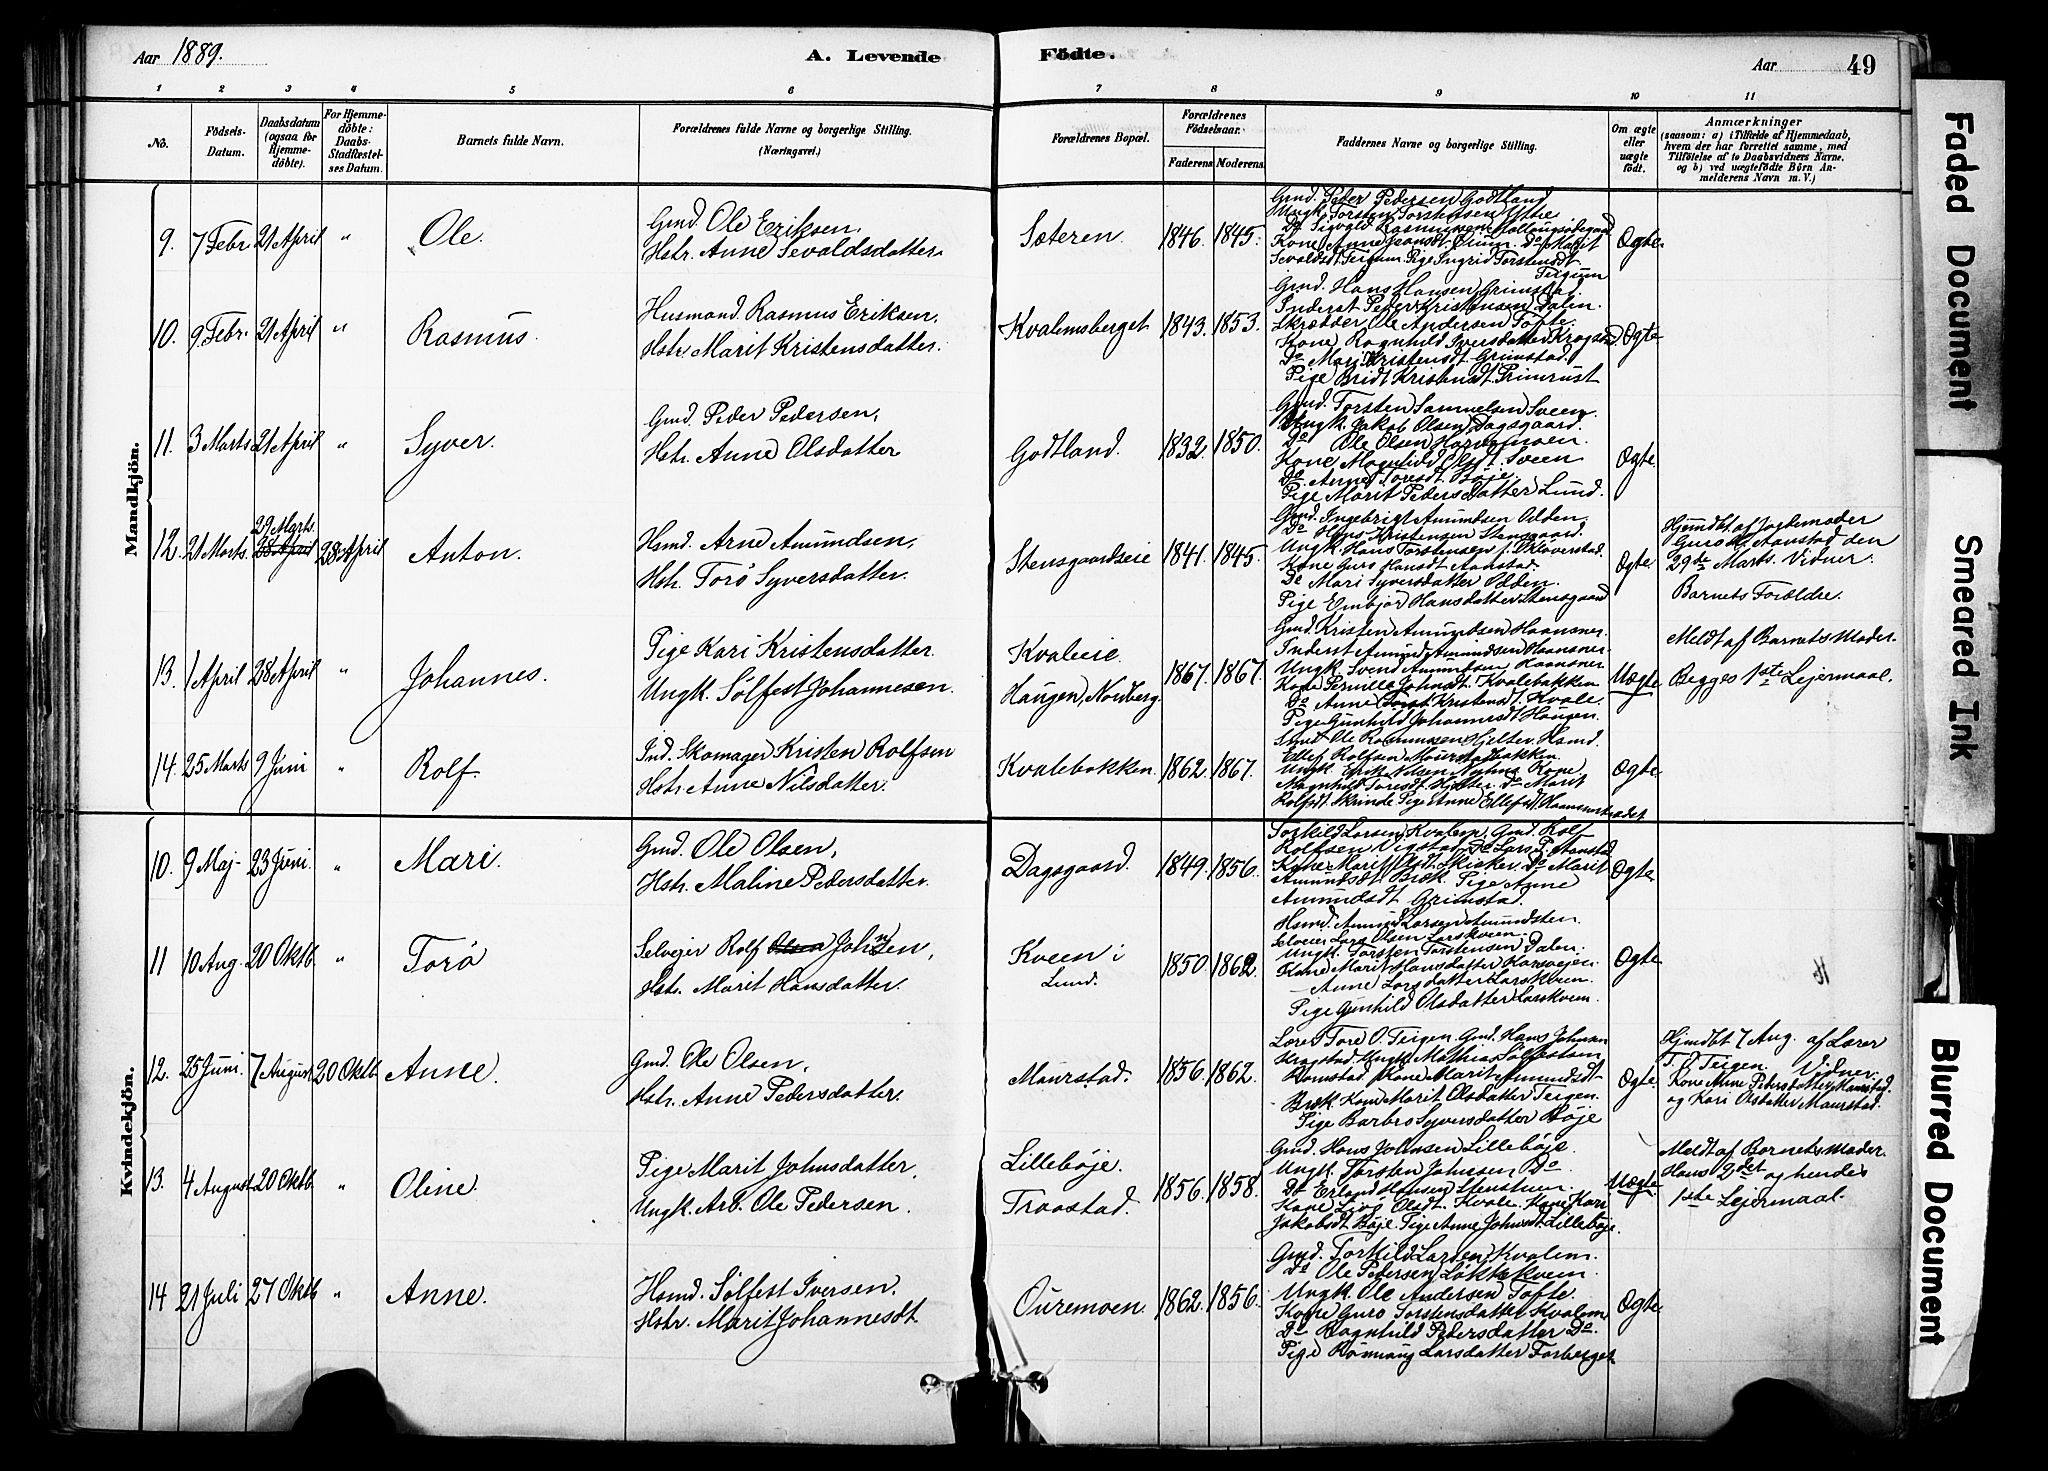 Aar 1889.
A. Levende
Födte.
Aar
49
1 2 3 4 5 6 7 8 9 10 11
No.
Födsels-
Datum.
Daabsdatum
(ogsaa for
Hjemme-
döbte).
For Hjemme-
döbte:
Daabs-
Stadfæstel-
ses Datum.
Barnets fulde Navn.
Forældrenes fulde Navne og borgerlige Stilling.
(Næringsvei.)
Forældrenes Bopæl.
Forældrenes
Födselsaar.
Faderens. Moderens.
Faddernes Navne og borgerlige Stilling.
Om ægte
eller
uægte
födt.
Anmærkninger
(saasom: a) i Tilfælde af Hjemmedaab,
hvem der har forrettet samme, med
Tilföielse af to Daabsvidners Navne,
og b) ved uægtefödte Börn An-
melderens Navn m. V.)
Mandkjön.
9. 7 Febr 21 April " Ole.
Gmd. Ole Eriksen,
Hstr. Anne Sevaldsdatter
Sæteren. 1846. 1845.
Gmd. Peder Pedersen Godtland
Ungk. Torsten Torstensen
Do Sigvald Rasmussen
Kone Anne
Sevaldsdt. Teigum. Pige Ingrid Torstensdt.
Teigum
Ægte
10. 9 Febr. 21 April " Rasmus
Husmand. Rasmus Eriksen,
Hstr. Marit Kristensdatter.
Kvalemsberget 1843. 1853.
Gmd. Hans Hansen Grimstad
Inderst Peder Kristensen Dalin.
Skrædder Ole Andersen Tofte.
Kone Ragnhild Syversdatter Kragstad
Do Mari Kristensdt. Grimstad.
Pige Bridt Kristensdt.
Ægte
11. 3 Marts 21 April " Syver.
Gmd. Peder Pedersen,
Hstr. Anne Olsdatter
Godtland. 1832. 1850.
Gmd. Torsten Samuelsen Sveen.
Ungk. Jakob Olsen Dagsgaard.
Do Ole Olsen
Kone Magnhild Olsdt. Sveen
Do. Anne Toresdt. Böje
Pige Marit Pedersdatter Lund.
Ægte.
12. 21 Marts. 29 Marts. 28 April 28 April Anton.
Hsmd. Arne Amundsen,
Hstr. Torö Syversdatter.
Stensgaardseie 1841. 1845.
Gmd. Ingebrigt Amundsen Odden.
Do Hans Kristensen Stensgaard.
Ungk. Hans Torstensen Kloverstad.
Kone Guro Hansdt. Aanstad.
Do Mari Syversdatter Odden.
Pige Embjør Hansdatter Stensgaard
Ægte
Hjemdbt af Jordemoder
Guro H. Aanstad den
29de Marts. Vidner.
Barnets Forældre.
13. 1 April 28 April " Johannes.
Pige Kari Kristensdatter.
Ungk. Sølfest Johannesen.
Kvaleeie.
Haugen, Nordberg. 1867. 1867.
Gmd. Kristen Amundsen Haansner.
Inderst Amund Amundsen Haansner.
Ungk. Svend Amundsen Haansner
Kone Pernille Johnsdt. Kvalebakken
Do Anne Kristensdt. Kvale.
Pige Gunhild Johannesdt. Haugen.
Uægte
Meldt af Barnets Moder.
Begges 1ste Lejermaal.
14. 25 Marts 9 Juni " Rolf.
Ind. Skomager Kristen Rolfsen
Hstr Anne Nilsdatter.
Kvalebakken. 1862. 1867.
Ole Rasmussen Hjelter. Hsmd.
Ellef Rolfsen
Ungk. Erik Nilsen Kone
Magnhild Toresdt. Hjelter. Do Marit
Rolfsdt. Skrinde Pige Anne Ellefsdt.
Ægte.
Kvindekjön.
10. 9 Maj 23 Juni. " Mari.
Gmd. Ole Olsen,
Hstr. Maline Pedersdatter.
Dagsgaard. 1849. 1856.
Torkild Larsen Kvalem. Gmd. Rolf
Rolfsen Vigstad, Do Lars P. Aanstad
Kone Marit Olsdt. Skjaker. Do Marit
Amundsdt. Bræk. Pige Anne
Amundsdt Grimstad.
Ægte
11 10 Aug. 20 Oktb. " Torø
Selvejer Rolf Olsen Johnsen,
Hstr. Marit Hansdatter.
Kveen i
Lund. 1850. 1862.
Hsmd. Amund Larsen
Selveier Lars Olsen Larskveen.
Ungk. Torsten Torstensen Dalen.
Kone Marit Hansdatter
Anne Larsdatter Larskveen.
Pige Gunhild Olsdatter Larskveen.
Ægte
12. 25 Juni. 7 August 20 Oktb. Anne.
Gmd. Ole Olsen,
Hstr. Anne Pedersdatter.
Maurstad. 1856. 1862.
Lærer Tore O. Teigen. Gmd. Hans Johnsen
Kragstad. Ungk. Mathias Sølfestsen
Ramstad. Kone Marit Amundsdt
Bræk. Kone Marit Olsdatter Teigen.
Pige Barbro Syversdatter Böje
Ægte.
Hjmdbt 7 Aug. af Lærer
T. O. Teigen. Vidner.
Kone Anne Pedersdatter Maurstad.
og Kari Olsdatter Maurstad.
13. 4 August 20 Oktb. " Oline.
Pige Marit Johnsdatter,
Ungk. Arb. Ole Pedersen.
Lillebøje.
Traastad. 1856. 1858.
Gmd. Hans Johnsen Lillebøje.
Ungk. Torsten Johnsen Do
Do Erland Hansen Stenstuen.
Kone Livø Olsdt. Kvale. Kone Kari
Jakobsdt. Bøje. Pige Anne Johnsdt. Lillebøje.
Uægte.
Meldt af Barnets Moder.
Hans 2det og hendes
1ste Lejermaal.
14 21 Juli 27 Oktb " Anne.
Hsmd. Sølfest Iversen.
Hstr. Marit Johannesdt
Ouremoen. 1862. 1856.
Gmd. Torkild Larsen Kvalem.
Do Ole Pedersen Løkkekveen.
Ungk. Ole Andersen Tofte.
Kone Guro Torstensdatter Kvalem
Do Ragnhild Pedersdatter Do.
Pige Rønnaug Larsdatter Forberget
Ægte.
Faded Document
Smeared Ink
Blurred Document